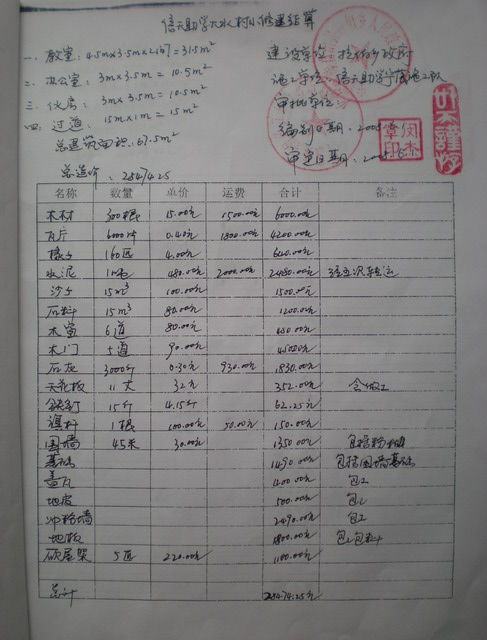 信天助学大水村小修建结算
一、教室：4.5m×3.5m×2间=31.5m²
二、办公室：3m×3.5m=10.5m²
三、伙房：3m×3.5m=10.5m²
四、过道：15m×1m=15m²
总建筑面积：67.5m²
建设单位：乡政府
施工单位：信天助学施工队
审批单位
编制日期：2008
审定日期：2008
总造价：28474.25
名称 数量 单价 运费 合计 备注
木材 300根 15.00元 1500.00元 6000.00元
瓦斤 6000片 0.40元 1800.00元 4200.00元
椽子 160匹 4.00元 640.00元
水泥 480.00元 2000.00元 2480.00元
沙子 15m³ 100.00元 1500.00元
石料 15m³ 80.00元 1200.00元
木窗 6道 80.00元 480.00元
木门 5道 90.00元 450.00元
石灰 3000斤 0.30元 930.00元 1830.00元
天花板 11丈 32元 352.00元 含做工
铁钉 15斤 4.15元 62.25元
1根 100.00元 50.00元 150.00元
围墙 45米 30.00元 1350.00元 包括粉
基础 1490.00元 包括围墙基础
盖瓦 1400.00元 包工
地皮 500.00元 包工
冲粉墙 2490.00元 包工
地板 1800.00元 包工包料
砍屋架 5匹 220.00元 1100.00元
总计 28474.25元